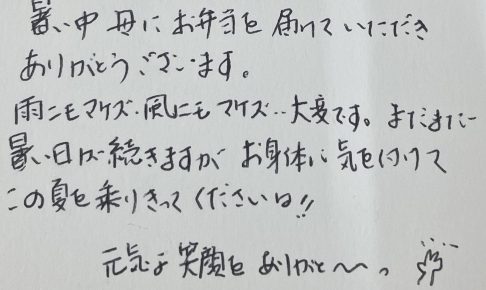 暑い中 母に お弁当を 届けて いただき
ありがとうございます。
雨ニモマケズ・風ニモマケズ・・大変です。まだまだ
暑い日が続きますが お身体に気を付けて
この夏を乗りきってくださいね!!
元気な笑顔を ありがと〜っ